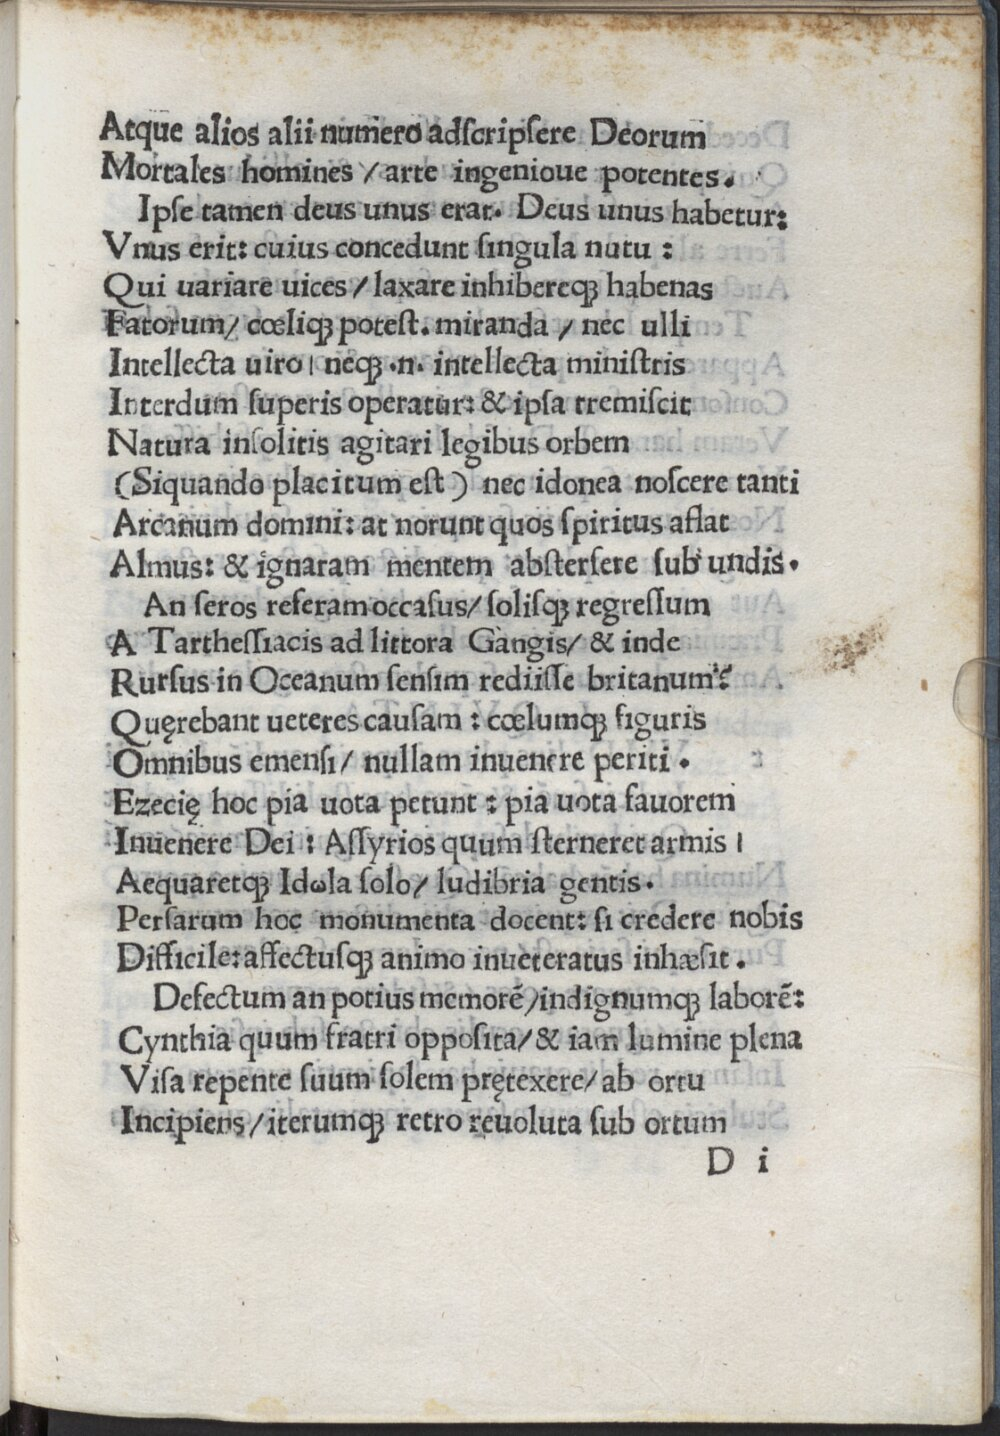 Atque alios alii numero adſcripſere Deorum
Mortales homines / arte ingenioue potentes.
Ipſe tamen deus unus erat. Deus unus habetur:
Vnus erit: cuius concedunt ſingula nutu :
Qui uariare uices / laxare inhibereqꝫ habenas
Fatorum / cœliqꝫ poteſt. miranda / nec ulli
Intellecta uiro | neqꝫ .n. intellecta miniſtris
Interdum ſuperis operatur: & ipſa tremiſcit
Natura inſolitis agitari legibus orbem
(Siquando placitum eſt) nec idonea noſcere tanti
Arcanum domini: at norunt quos ſpiritus aflat
Almus: & ignaram mentem abſterſere ſub undis.
An ſeros referam occaſus / ſoliſqꝫ regreſſum
A Tartheſſiacis ad littora Gangis / & inde
Rurſus in Oceanum ſenſim rediiſſe britanum?
Quęrebant ueteres cauſam : cœlumqꝫ figuris
Omnibus emenſi / nullam inuenere periti .
Ezecię hoc pia uota petunt : pia uota fauorem
Inuenere Dei : Aſſyrios quum ſterneret armis |
Aequaretqꝫ Idωla ſolo / ludibria gentis.
Perſarum hoc monumenta docent: ſi credere nobis
Difficile: affectuſqꝫ animo inueteratus inhæſit .
Defectum an potius memorē / indignumqꝫ laborē:
Cynthia quum fratri oppoſita / & iam lumine plena
Viſa repente ſuum ſolem prętexere / ab ortu
Incipiens / iterumqꝫ retro reuoluta ſub ortum
D i